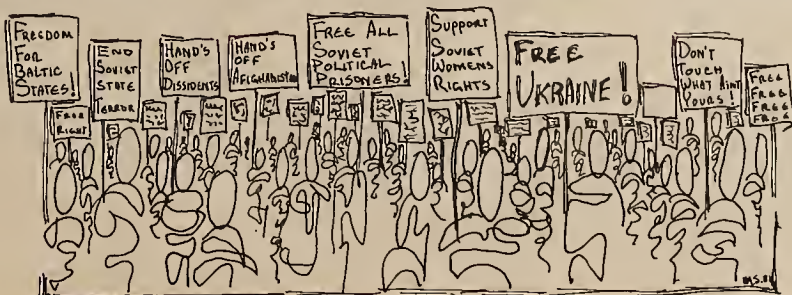 FREEDOM
FOR
BALTIC
STATES!
END
SOVIET
STATE
TERROR
HAND'S
OFF
DISSIDENTS
HAND'S
OFF
AFIGHANISTAN
FREE ALL
SOVIET
POLITICAL
PRISONERS!
SUPPORT
SOVIET
WOMENS
RIGHTS
FREE
UKRAINE!
DON'T
TOUCH
WHAT AINT
YOURS!
FREE
FREE
FREE
FROG
RIGHT